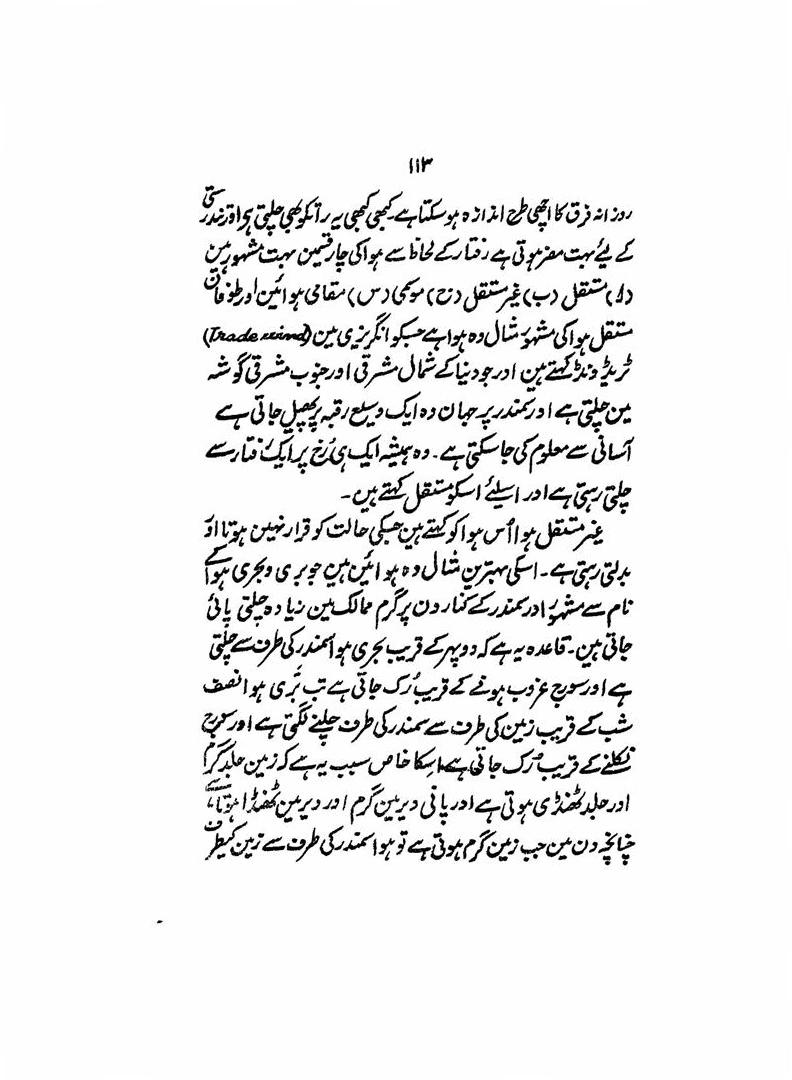 ۱۱۳
روزانہ فرق کا اچھی طرح اندازہ ہو سکتا ہے کبھی کبھی یہ راتکو بھی چلتی ہی اور تندرستی
کے لیے بہت مضر ہوتی ہے رفتار کے لحاظ سے ہوا کی چار قسمین بہت مشہور ہین
(ا) مستقل (ب) غیر مستقل (ج) موسمی (س) مقامی ہوائین اور طوفان
مستقل ہوا کی مشہور مثال وہ ہوا ہے جسکو انگریزی مین (Trade wind)
ٹریڈ ونڈ کہتے ہین اور جو دنیا کے شمال مشرقی اور جنوب مشرقی گوشہ
مین چلتی ہے اور سمندر پر جہان وہ ایک وسیع رقبہ پر پھیل جاتی ہے
آسانی سے معلوم کی جا سکتی ہے۔ وہ ہمیشہ ایک ہی رُخ پر ایک رفتار سے
چلتی رہتی ہے اور اسلئے اسکو مستقل کہتے ہیں۔
غیر مستقل ہوا اُس ہوا کو کہتے ہین جسکی حالت کو قرار نہین ہوتا اور
بدلتی رہتی ہے۔ اسکی بہترین مثال وہ ہوائین ہین جو بری و بحری ہوا کے
نام سے مشہور اور سمندر کے کنارون پر گرم ممالک مین زیادہ چلتی پائی
جاتی ہین۔ قاعدہ یہ ہے کہ دوپہر کے قریب بحری ہوا سمندر کی طرف سے چلتی
ہے اور سورج غروب ہونے کے قریب رُک جاتی ہے تب بَری ہوا نصف
شب کے قریب زمین کی طرف سے سمندر کی طرف چلنے لگتی ہے اور سورج
نکلنے کے قریب رُک جاتی ہے اسکا خاص سبب یہ ہے کہ زمین جلد گرم
اور جلد ٹھنڈی ہوتی ہے اور پانی دیر مین گرم اور دیر مین ٹھنڈا ہوتا ہے
چنانچہ دن مین جب زمین گرم ہوتی ہے تو ہوا سمندر کی طرف سے زمین کیطرف